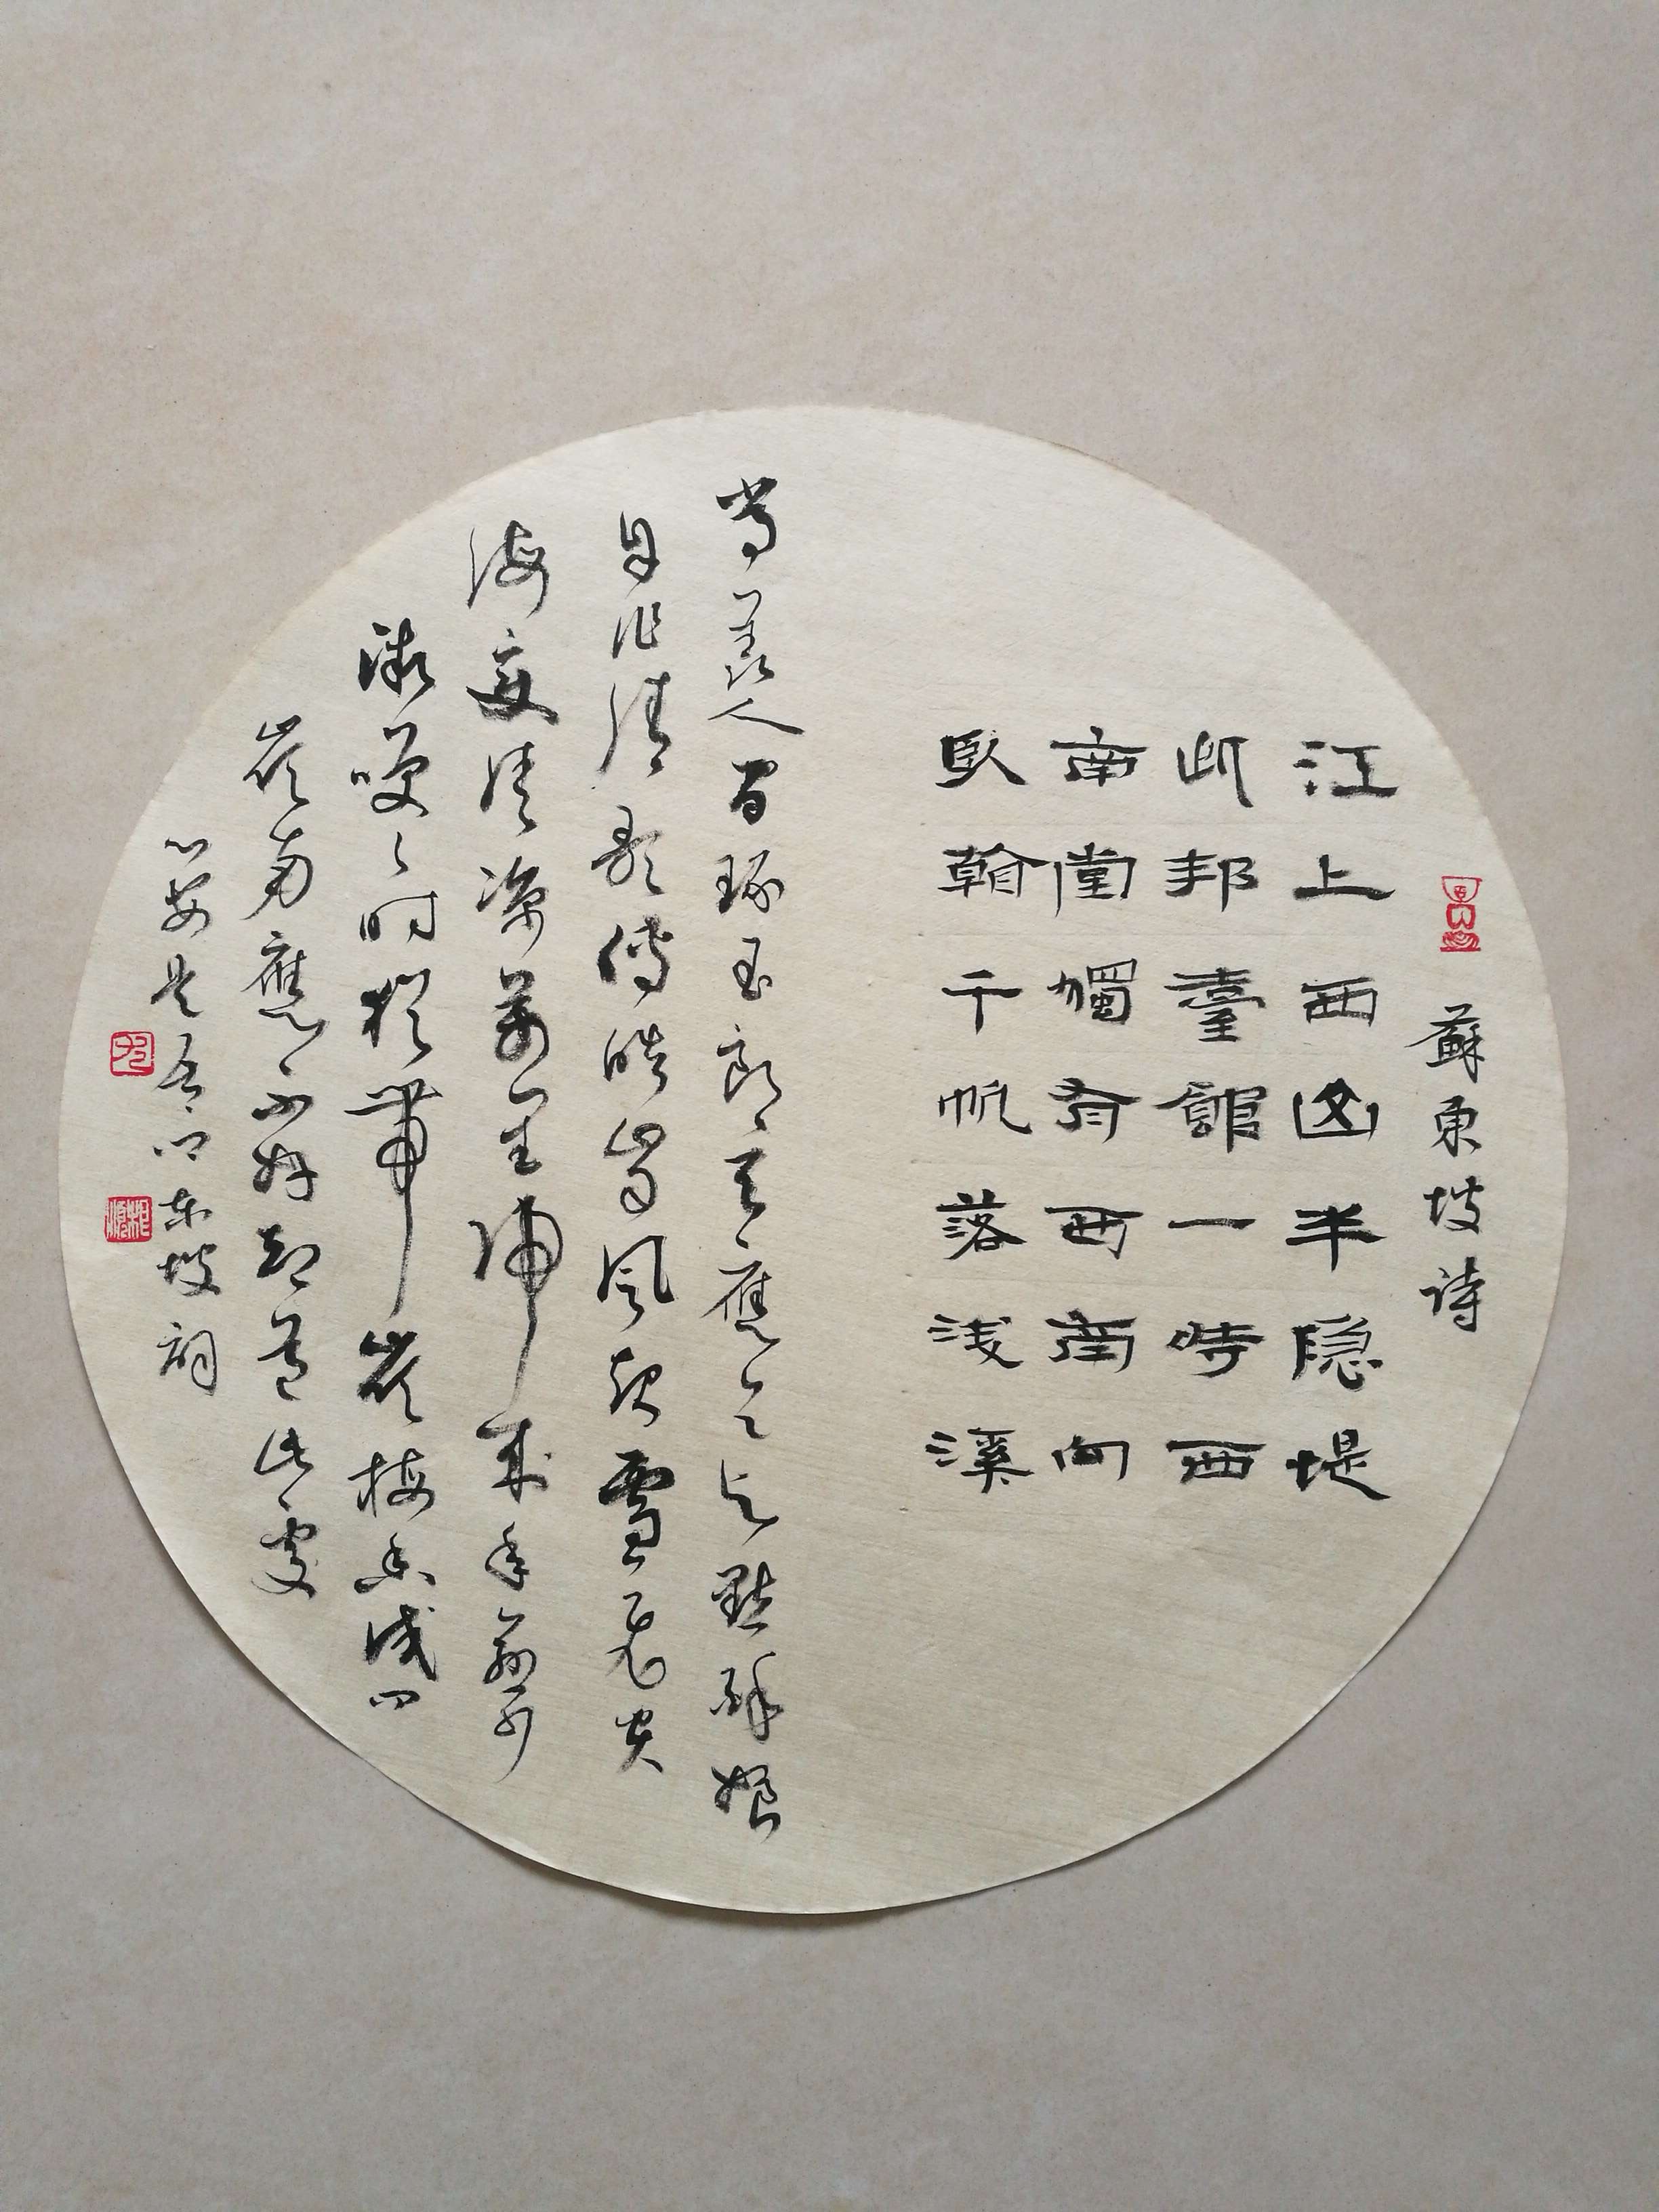 蘇東坡詩
江上西山半隐堤
此邦臺館一時西
南堂獨有西南向
臥看千帆落浅溪
常羨人間琢玉郎天應乞與點酥娘
自作清歌傳皓齒風起雪飛炎
海變清涼萬里歸來年愈少
微咲々時猶帶嶺梅香試問
嶺南應不好却道此處
心安是吾鄉東坡詞